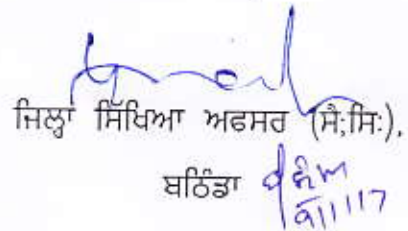 ਜਿਲ੍ਹਾਂ ਸਿੱਖਿਆ ਅਫਸਰ (ਸੈ;ਸਿ:),
ਬਠਿੰਡਾ
9/11/17